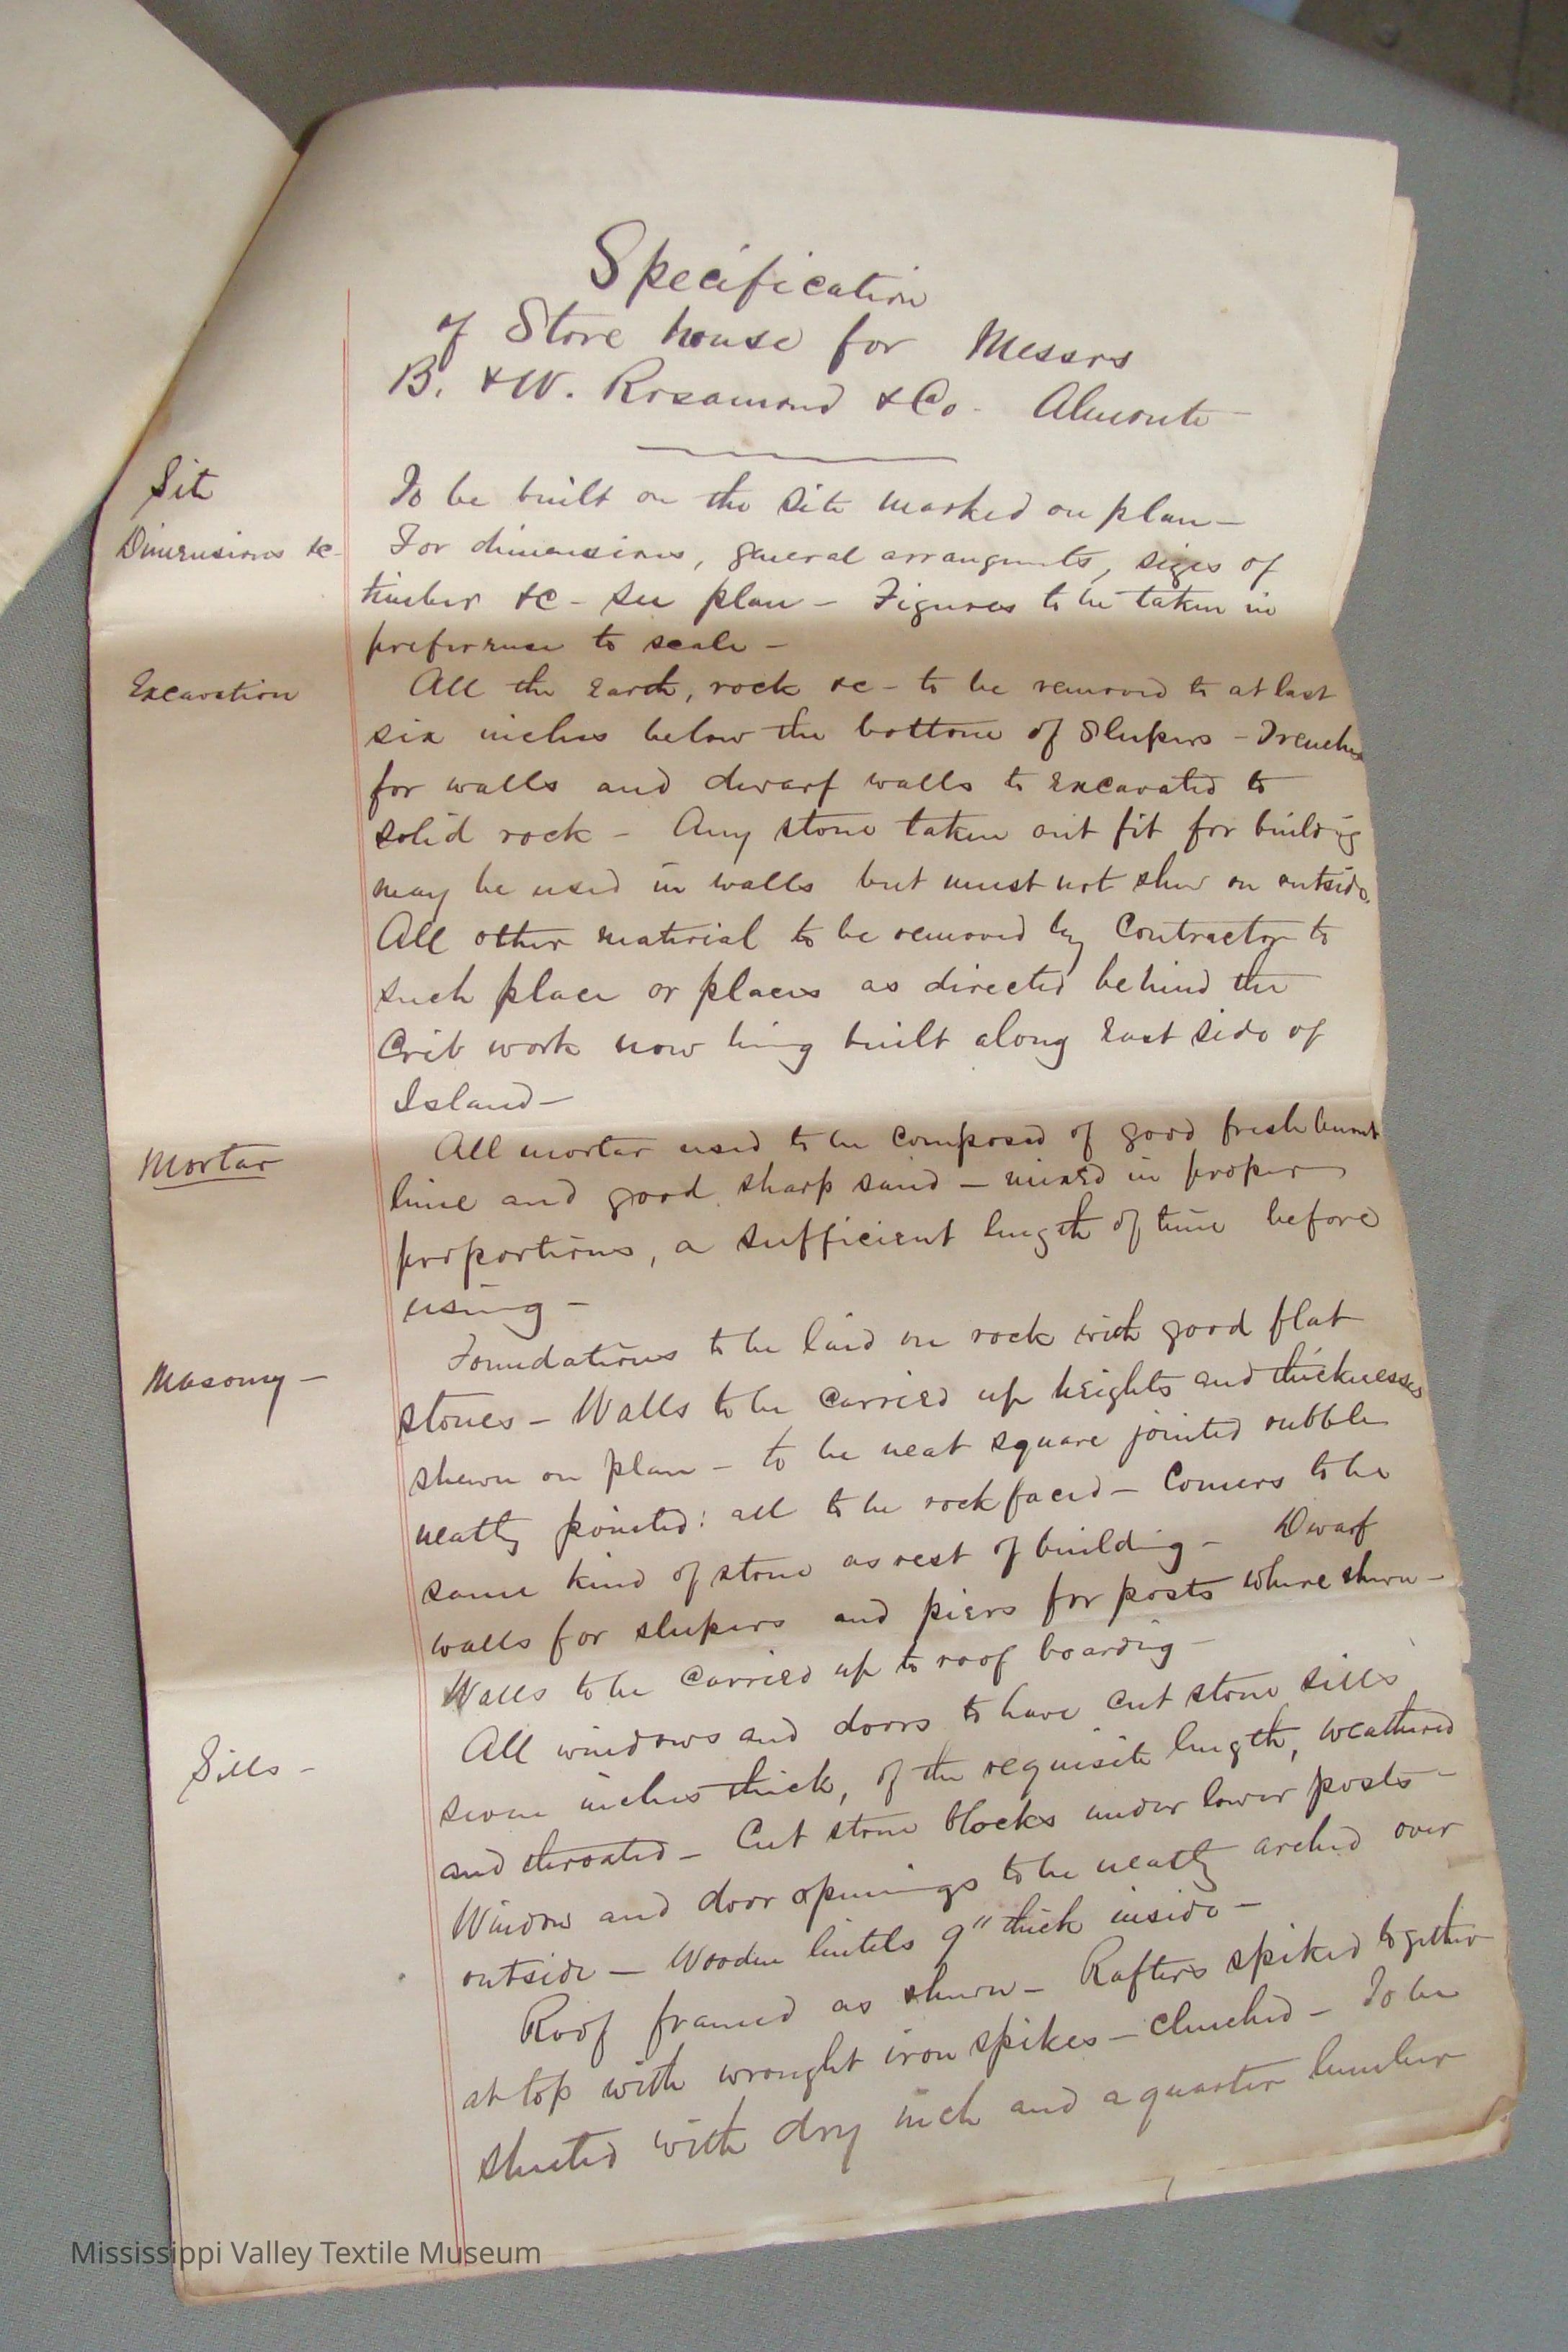 Specification
of Store house for Messrs
B. & W. Rosamond & Co. Almonte
Site
To be built on the site marked on plan –
Dimensions &c
For dimensions, general arrangmts, sizes of
timber &c – see plan – Figures to be taken in
preference to scale –
Excavation
All the Earth, rock &c – to be removed to at last
six inches below the bottom of Sleepers – Trenches
for walls and dwarf walls to Excavated to
solid rock – Any stone taken out fit for building
may be used in walls but must not show on outside.
All other material to be removed by Contractor to
such place or places as directed behind the
Crib work now being built along East side of
Island –
Mortar
All mortar used to be composed of good fresh burnt
lime and good sharp sand – mixed in proper
proportions, a sufficient length of time before
using –
Masonry –
Foundations to be laid on rock with good flat
stones – Walls to be carried up heights and thicknesses
shewn on plan – to be neat square jointed rubble
neatly pointed: all to be rock faced – Corners to be
same kind of stone as rest of building – Dwarf
walls for sleepers and piers for posts where shewn –
Walls to be carried up to roof boarding –
Sills –
All windows and doors to have cut stone sills
seven inches thick, of the requisite length, weathered
and throated – Cut stone blocks under lower posts –
Window and door openings to be neatly arched over
outside – Wooden lintels 9" thick inside –
Roof framed as shewn – Rafters spiked together
at top with wrought iron spikes – clinched – To be
sheeted with dry inch and a quarter lumber
Mississippi Valley Textile Museum